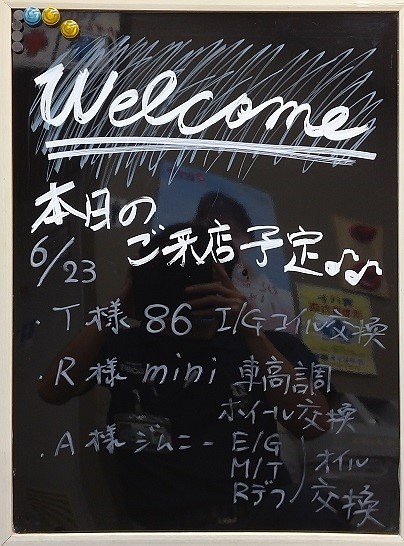 Welcome
本日の
ご来店予定♪♪
6/23
・T様 86 I/Gコイル交換
・R様 mini 車高調
ホイール交換
・A様 ジムニー E/G
M/T オイル
Rデフ 交換